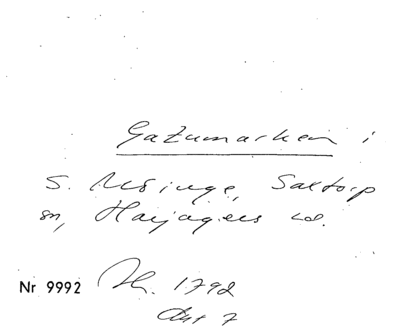 Gatumarken i
S. Möinge, Saxtorp
sn, Harjagers hd.
Nr 9992 Th. 1792
Akt 7